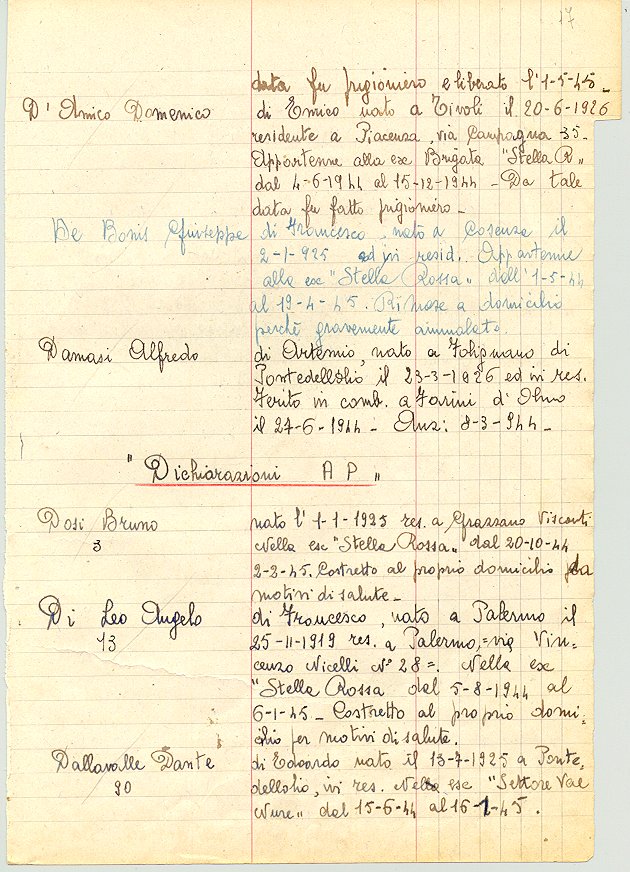 17
data fu prigioniero e liberato l'1-5-45-
D'Amico Domenico di Emico nato a Tivoli il 20-6-1926
residente a Piacenza, via Campagna 35-
Appartenne alla ex Brigata "Stella R„
dal 4-6-1944 al 15-12-1944 - Da tale
data fu fatto prigioniero -
De Bonis Giuseppe di Francesco, nato a Cosenza il
2-1-925 ed ivi resid. Appartenne
alla ex "Stella Rossa„ dall'1-5-44
al 19-4-45. Rimase a domicilio
perchè gravemente ammalato.
Damasi Alfredo di Artemio, nato a Folignano di
Pontedellolio il 23-3-1926 ed ivi res.
Ferito in comb. a Farini d'Olmo
il 27-6-1944 - Anz: 8-3-944 -
"Dichiarazioni A P„
Dosi Bruno nato l'1-1-1925 res. a Grazzano Visconti
3 Nella ex "Stella Rossa„ dal 20-10-44
2-2-45. Costretto al proprio domicilio da
motivi di salute -
Di Leo Angelo di Francesco, nato a Palermo il
13 25-11-1919 res. a Palermo,=via Vin=
cenzo Nicelli N° 28=. Nella ex
"Stella Rossa dal 5-8-1944 al
6-1-45 - Costretto al proprio domi=
cilio per motivi di salute.
Dallavalle Dante di Edoardo nato il 13-7-1925 a Ponte,
90 dellolio, ivi res. Nella ex "Settore Val
Nure„ dal 15-6-44 al 16-1-45.